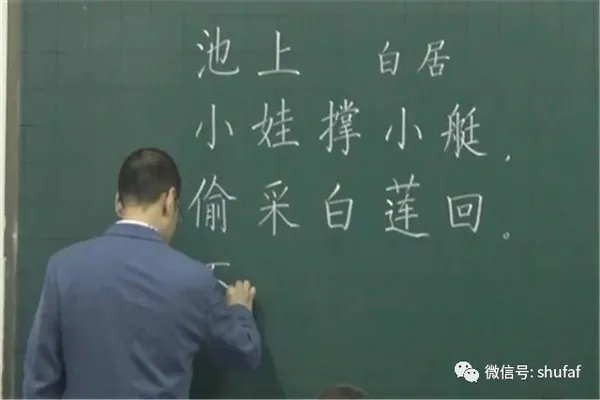 池上 白居
小娃撑小艇，
偷采白莲回。
微信号: shufaf